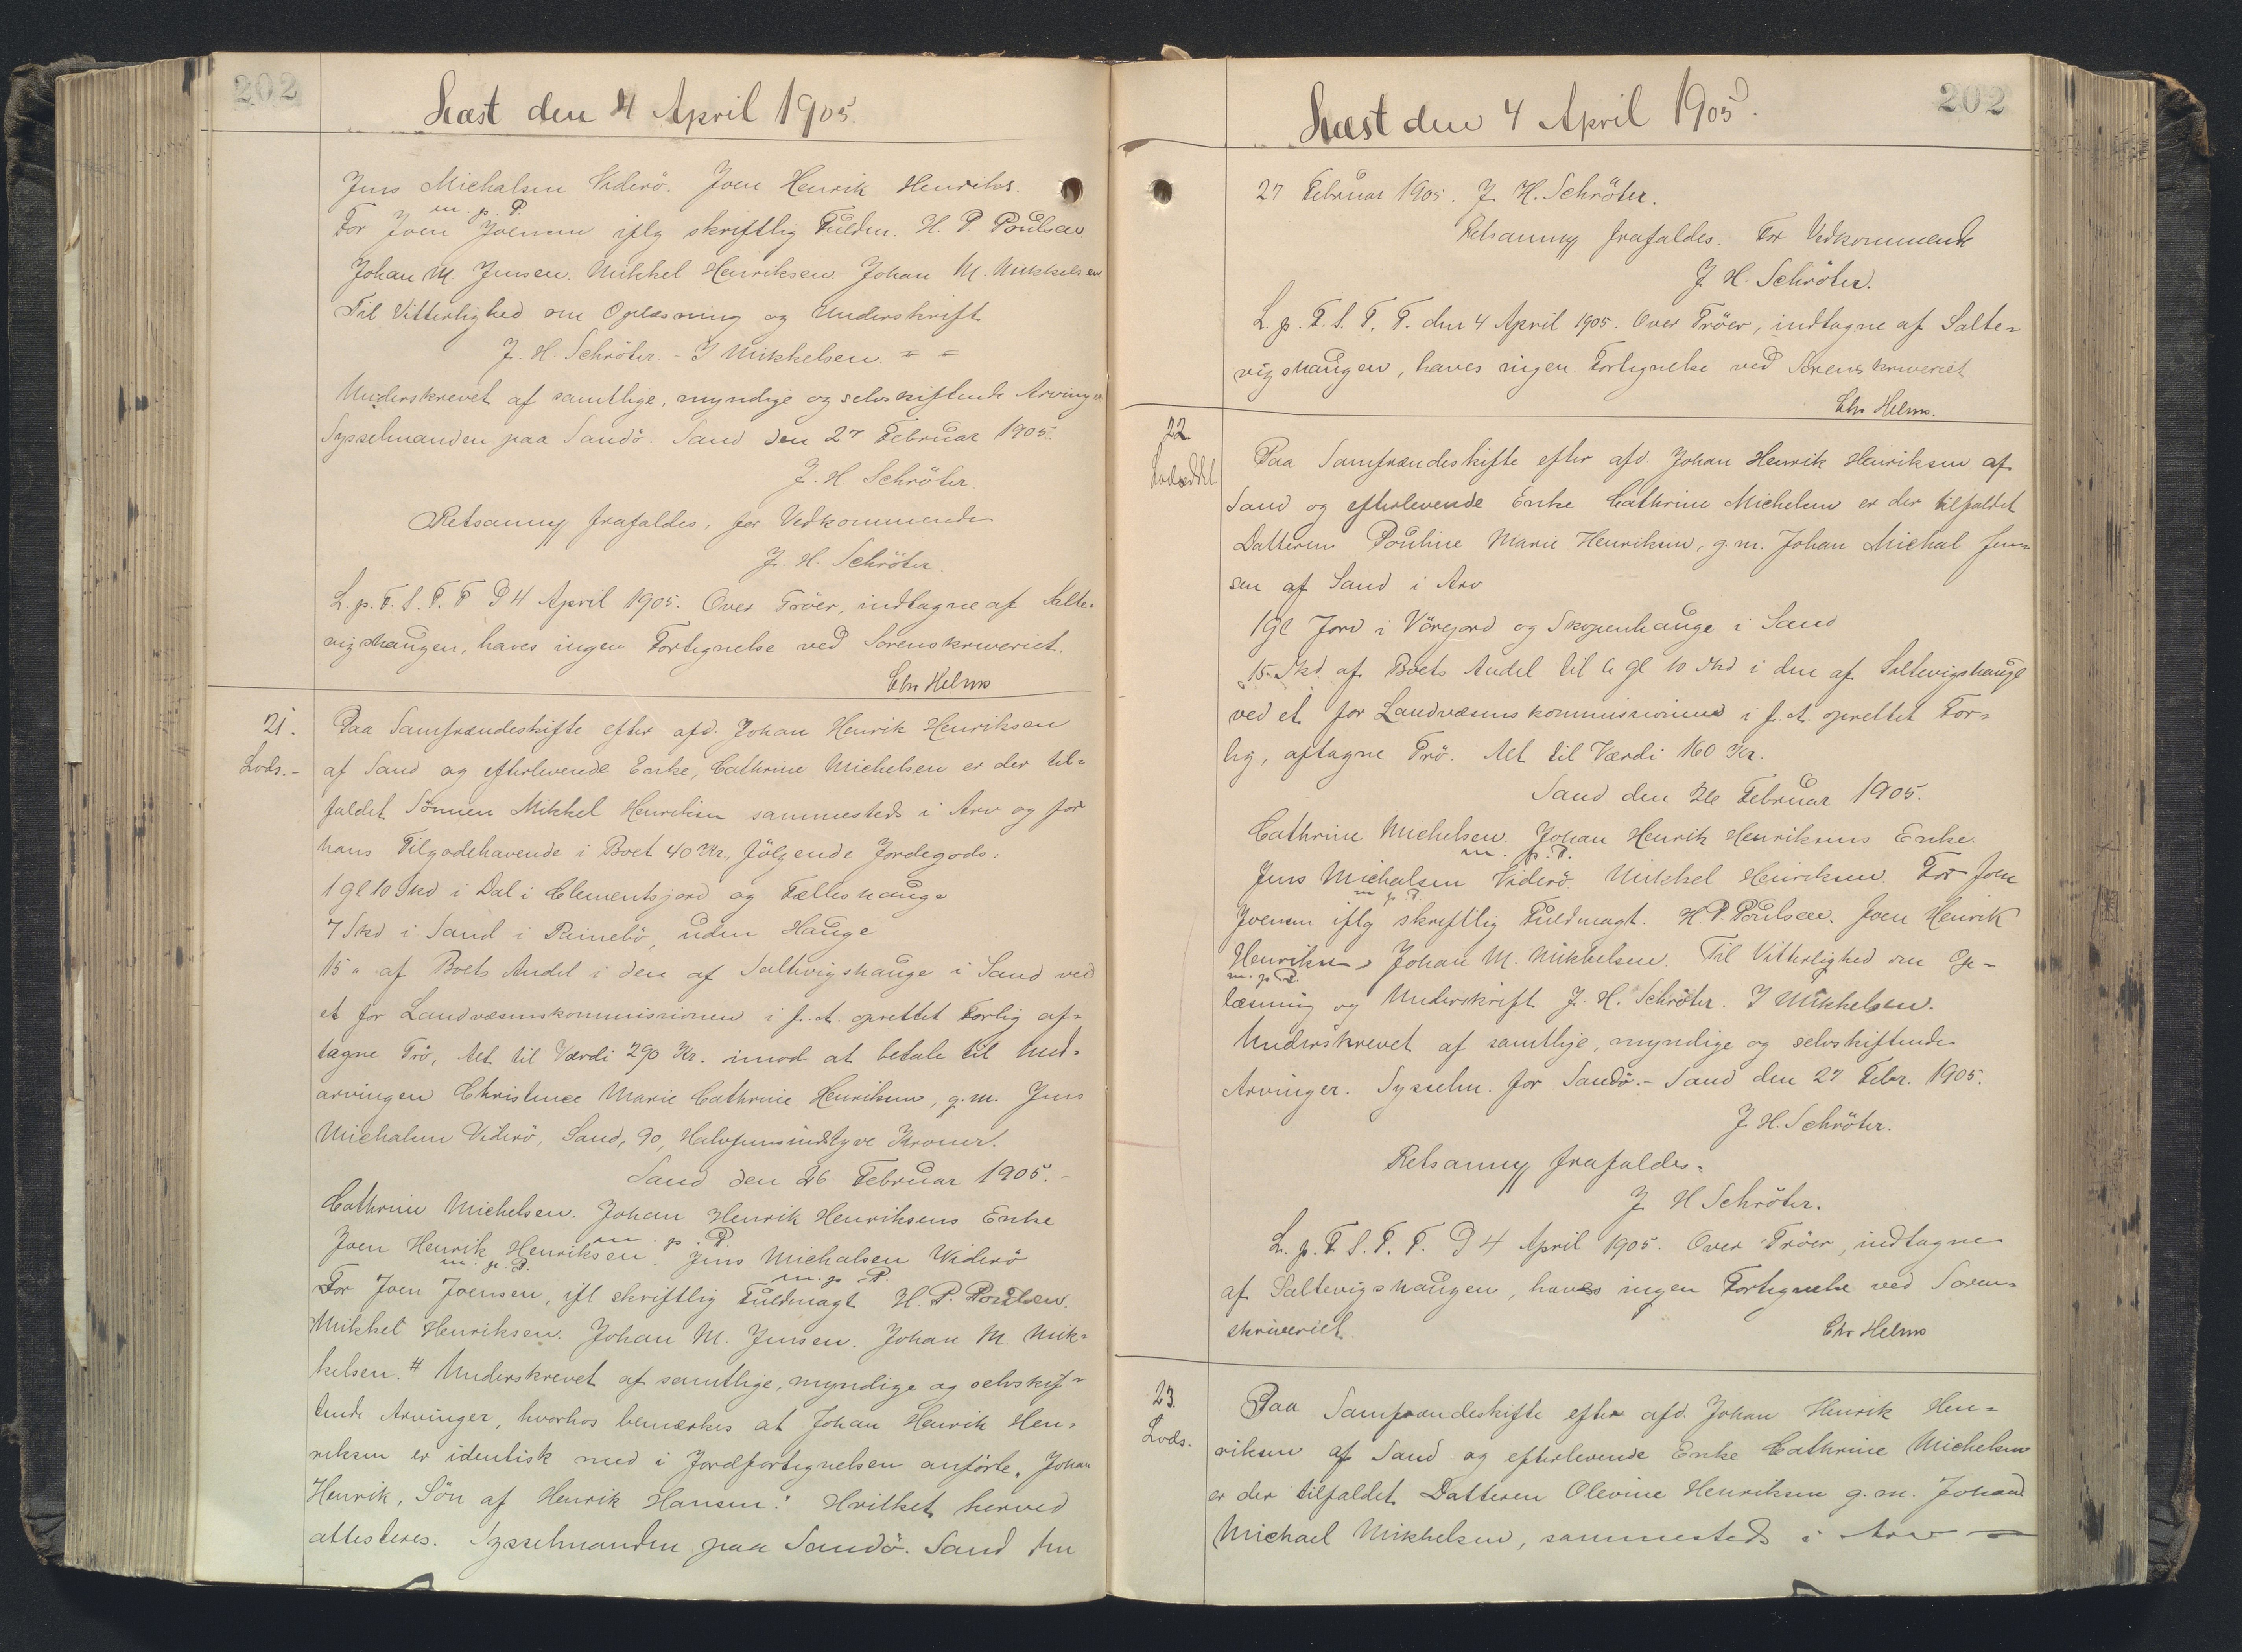 202
Læst den 4 April 1905.
Jens Michalsen Viderö. Joen Henrik Henriks.
m. p. P.
For Joen Joensen iflg skriftlig Fuldm. H. P. Poulsen
Johan M. Jensen. Mikkel Henriksen. Johan M. Mikkelsen
Til Vitterlighed om Oplæsning og Underskrift
J. H. Schröter. - I Mikkelsen. = =
Underskrevet af samtlige, myndige og selvskiftende Arvinger
Sysselmanden paa Sandö. Sand den 27 Februar 1905.
J. H. Schröter.
Retsanmg frafaldes, for Vedkommende
J. H. Schröter.
L. p. F. S. T. T D 4 April 1905. Over Tröer, indtagne af Salte-
vigshaugen, haves ingen Fortegnelse ved Sorenskriveriet.
Chr Helms
21.
Lods.-
Paa Samfrændeskifte efter afd. Johan Henrik Henriksen
af Sand og efterlevende Enke, Cathrine Michelsen er der til-
faldet Sönnen Mikkel Henriksen sammesteds i Arv og for
hans Tilgodehavende i Boet 40 Kr., fölgende Jordegods:
1 gl 10 Skd i Dal i Clementsjord og Fælleshauge
7 Skd i Sand i Reinebö, uden Hauge
15 " af Boets Andel i den af Saltevigshauge i Sand ved
et for Landvæsenskommissionen i f. A. oprettet Forlig af-
tagne Trö, Alt til Værdi 290 Kr. imod at betale til Med-
arvingen Christence Marie Cathrine Henriksen, g. m. Jens
Michalsen Viderö, Sand, 90, Halvfemsindstyve Kroner.
Sand den 26 Februar 1905.-
Cathrine Michelsen. Johan Henrik Henriksens Enke
m. p. P.
Joen Henrik Henriksen. Jens Michalsen Viderö
m. p. P. m. p. P.
For Joen Joensen, ifl skriftlig Fuldmagt H. P. Poulsen.
Mikkel Henriksen. Johan M. Jensen. Johan M. Mik-
kelsen. # Underskrevet af samtlige, myndige og selvskif-
tende Arvinger, hvorhos bemærkes at Johan Henrik Hen-
riksen er identisk med i Jordfortegnelsen anförte „Johan
Henrik, Sön af Henrik Hansen". Hvilket herved
attesteres. Sysselmanden paa Sandö. Sand den
202
Læst den 4 April 1905.
27 Februar 1905. J. H. Schröter.
Retsanmg frafaldes. For Vedkommende
J. H. Schröter.
L. p. F. S. T. T. den 4 April 1905. Over Tröer, indtagne af Salte-
vigshaugen, haves ingen Fortegnelse ved Sorenskriveriet
Chr Helms.
22.
Lodseddel
Paa Samfrændeskifte efter afd. Johan Henrik Henriksen af
Sand og efterlevende Enke Cathrine Michelsen er der tilfaldet
Datteren Pouline Marie Henriksen, g. m. Johan Michal Jen-
sen af Sand i Arv
1 gl Jord i Vörejord og Skopenhauge i Sand
15 Skd. af Boets Andel til 6 gl 10 Skd i den af Saltevigshauge
ved et for Landvæsenskommissionen i f. A. oprettet For-
lig, aftagne Trö. Alt til Værdi 160 Kr.
Sand den 26 Februar 1905.
Cathrine Michelsen. Johan Henrik Henriksens Enke.
m. p. P.
Jens Michalsen Viderö. Mikkel Henriksen. For Joen
m. p. P.
Joensen iflg skriftlig Fuldmagt. H. P. Poulsen. Joen Henrik
Henriksen, Johan M. Mikkelsen. Til Vitterlighed om Op-
m. p. P.
læsning og Underskrift J. H. Schröter. I Mikkelsen.
Underskrevet af samtlige, myndige og selvskiftende
Arvinger. Sysselm. for Sandö.- Sand den 27 Febr. 1905.
J. H. Schröter.
Retsanmg frafaldes.
J. H Schröter.
L. p. F. S. T. T. D 4 April 1905. Over Tröer, indtagne
af Saltevigshaugen, haves ingen Fortegnelse ved Soren-
skriveriet.
Chr Helms
23.
Lods.
Paa Samfrændeskifte efter afd. Johan Henrik Hen-
riksen af Sand og efterlevende Enke Cathrine Michelsen
er der tilfaldet Datteren Olevine Henriksen g. m. Johan
Michael Mikkelsen, sammesteds i Arv —